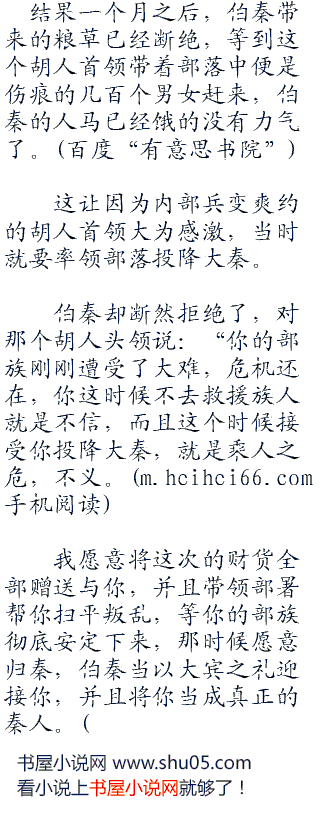 结果一个月之后，伯秦带
来的粮草已经断绝，等到这
个胡人首领带着部落中便是
伤痕的几百个男女赶来，伯
秦的人马已经饿的没有力气
了。(百度“有意思书院”)
这让因为内部兵变爽约
的胡人首领大为感激，当时
就要率领部落投降大秦。
伯秦却断然拒绝了，对
那个胡人头领说：“你的部
族刚刚遭受了大难，危机还
在，你这时候不去救援族人
就是不信，而且这个时候接
受你投降大秦，就是乘人之
危，不义。(m.hcihci66.com
手机阅读)
我愿意将这次的财货全
部赠送与你，并且带领部署
帮你扫平叛乱，等你的部族
彻底安定下来，那时候愿意
归秦，伯秦当以大宾之礼迎
接你，并且将你当成真正的
秦人。(
书屋小说网 www.shu05.com
看小说上书屋小说网就够了！